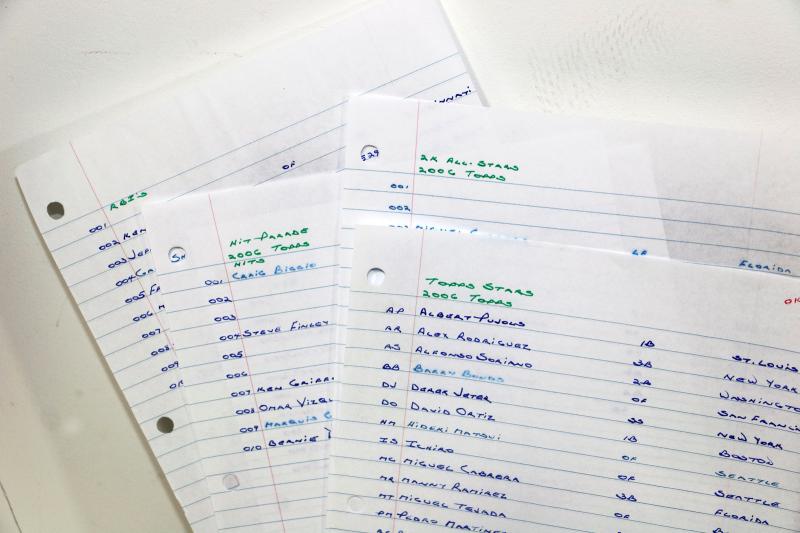 RBI's
001
002 KEN
003 JEF
004
005
006
007
008
009
OF
HIT PARADE
2006 TOPPS
HITS
001 CRAIG BIGGIO
002
003
004 STEVE FINLEY
005
006
007 KEN GRIFF
008 OMAR VIZQU
009 MARQUIS G
010 BERNIE
2K ALL-STARS
2006 TOPPS
001
002
LF FLORIDA
TOPPS STARS
2006 TOPPS
OK
AP ALBERT PUJOLS 1B ST. LOUIS
AR ALEX RODRIGUEZ 3B NEW YORK
AS ALFONSO SORIANO 2B WASHINGTO
BB BARRY BONDS OF SAN FRANC
DJ DEREK JETER SS NEW YORK
DO DAVID ORTIZ 1B BOSTON
HM HIDEKI MATSUI OF SEATTLE
IS ICHIRO OF SEATTLE
MC MIGUEL CABRERA 3B FLORIDA
MR MANNY RAMIREZ OF
MT MIGUEL TEJADA
PM PEDRO MARTINE